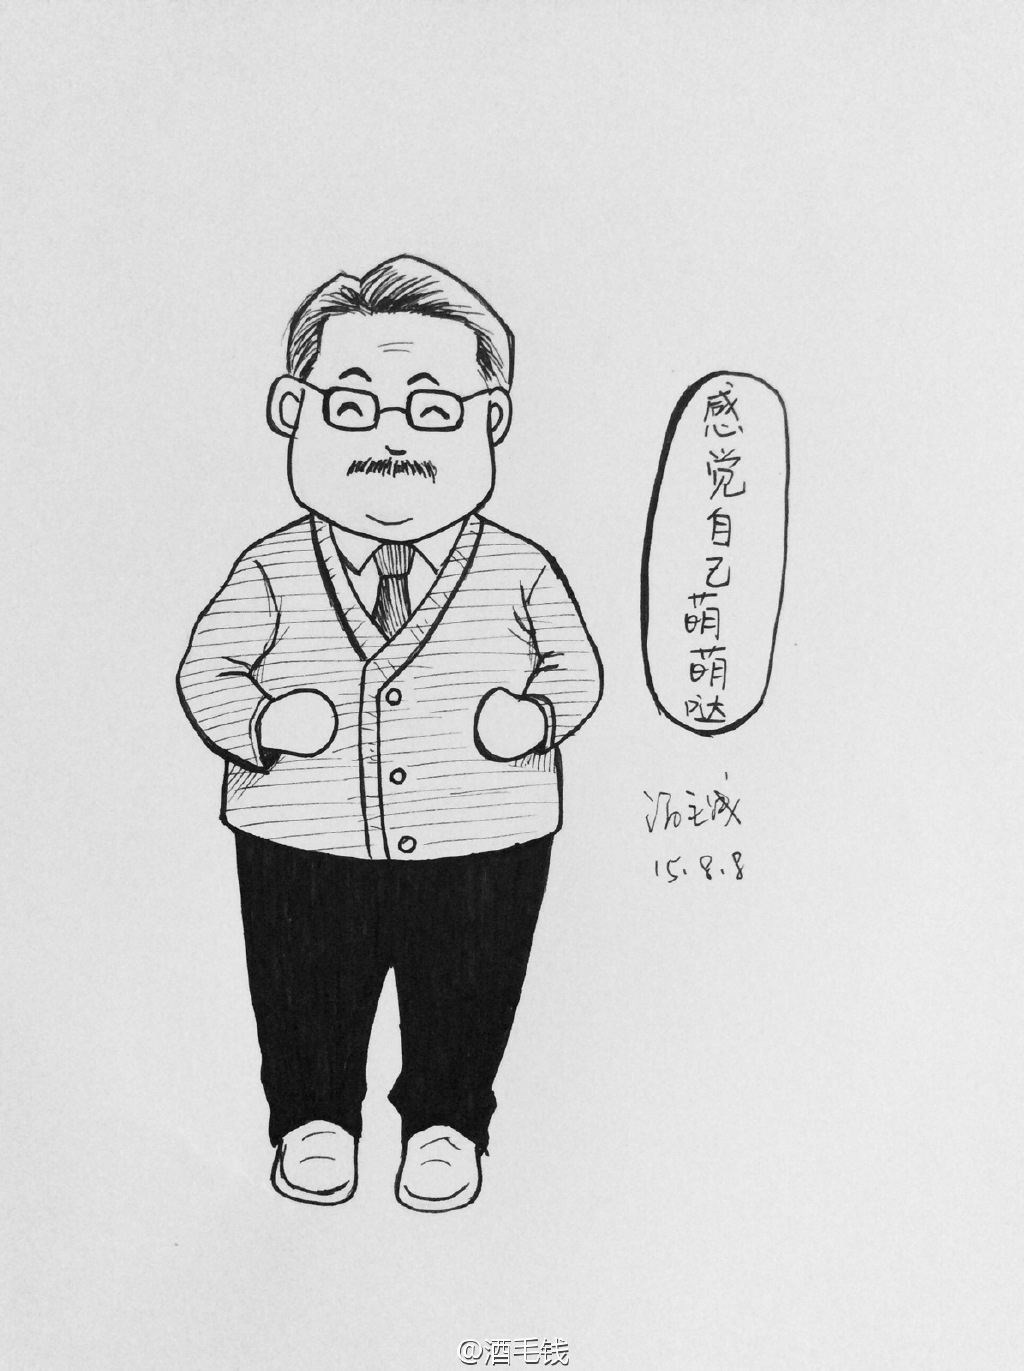 感觉自己萌萌哒
15.8.8
@酒毛钱